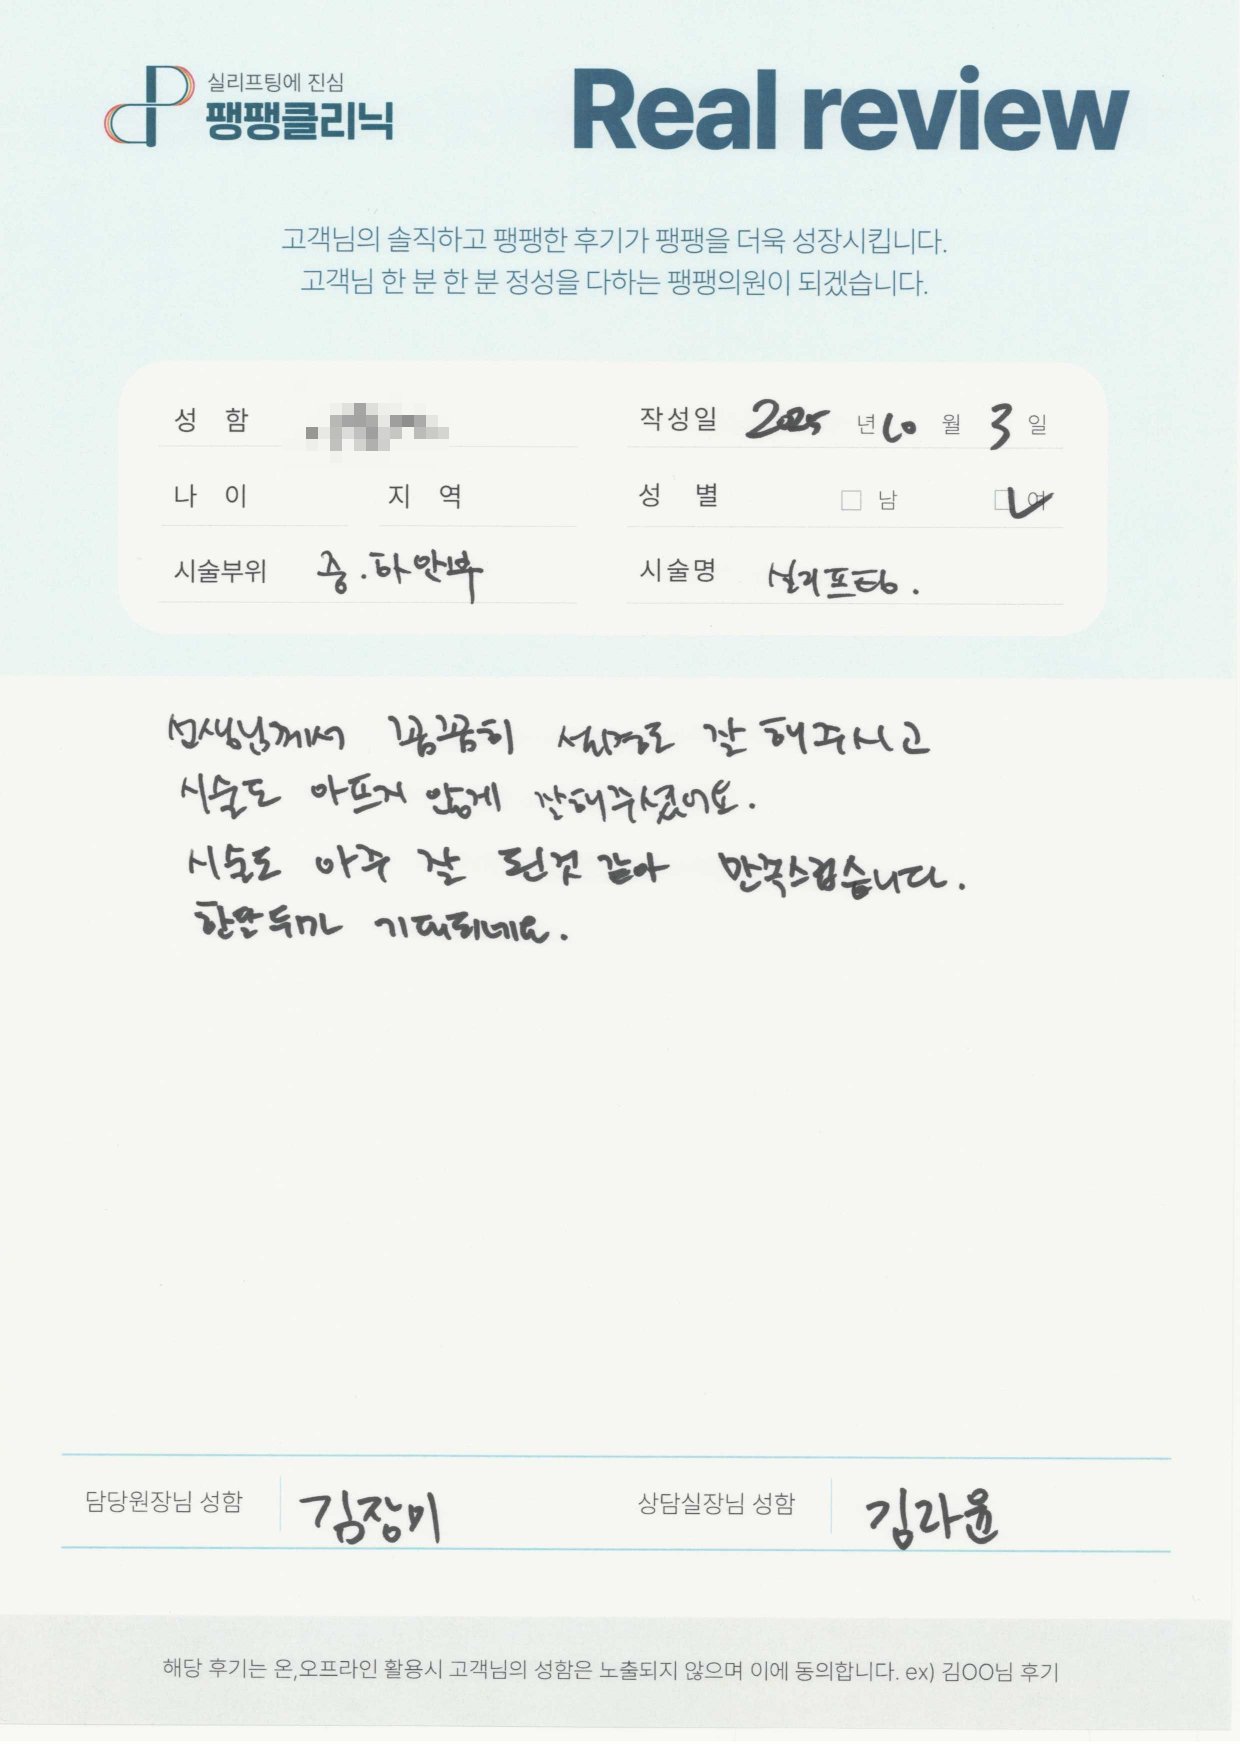 실리프팅에 진심
팽팽클리닉
Real review
고객님의 솔직하고 팽팽한 후기가 팽팽을 더욱 성장시킵니다.
고객님 한 분 한 분 정성을 다하는 팽팽의원이 되겠습니다.
성 함 작성일 2025 년 10 월 3 일
나 이 지 역 성 별 남 여
시술부위 중.하안부 시술명 실리프팅.
선생님께서 꼼꼼히 설명도 잘 해주시고
시술도 아프지 않게 잘해주셨어요.
시술도 아주 잘 된것 같아 만족스럽습니다.
한달두가 기대되네요.
담당원장님 성함 김장미 상담실장님 성함 김라윤
해당 후기는 온,오프라인 활용시 고객님의 성함은 노출되지 않으며 이에 동의합니다. ex) 김OO님 후기